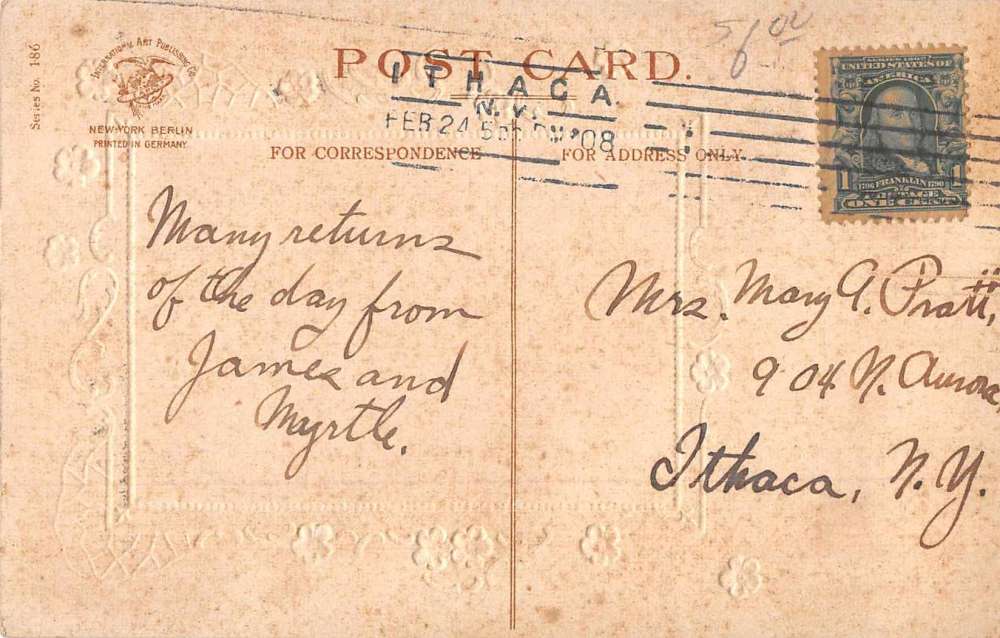 Series No. 186
INTERNATIONAL ART PUBLISHING CO.
NEW-YORK BERLIN
PRINTED IN GERMANY
POST CARD.
ITHACA
N.Y.
FEB 24 '08
FOR CORRESPONDENCE
FOR ADDRESS ONLY.
SERIES 1902
UNITED STATES OF
AMERICA
1 FRANKLIN 1
POSTAGE
ONE CENT
Many returns
of the day from
James and
Myrtle.
Mrs. Mary A. Pratt,
904 N. Aurora
Ithaca, N.Y.